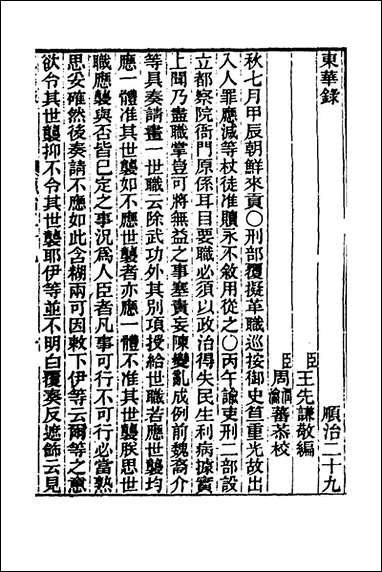 東華錄
順治二十九
臣王先謙敬編
臣周潤蕃周瀹蕃恭校
秋七月甲辰朝鮮來貢○刑部覆擬革職巡按御史笪重光故出
入人罪應減等杖徒准贖永不敘用從之○丙午諭吏刑二部設
立都察院衙門原係耳目要職必須以政治得失民生利病據實
上聞乃盡職掌豈可將無益之事塞責妄陳變亂成例前魏裔介
等具奏請盡一世職云除武功外其別項授給世職若應世襲均
應一體准其世襲如不應世襲者亦應一體不准其世襲朕思世
職應襲與否皆已定之事況爲人臣者凡事可行不可行必當熟
思妥確然後奏請不應如此含糊兩可因敕下伊等云爾等之意
欲令其世襲抑不令其世襲耶伊等並不明白覆奏反遮飾云見